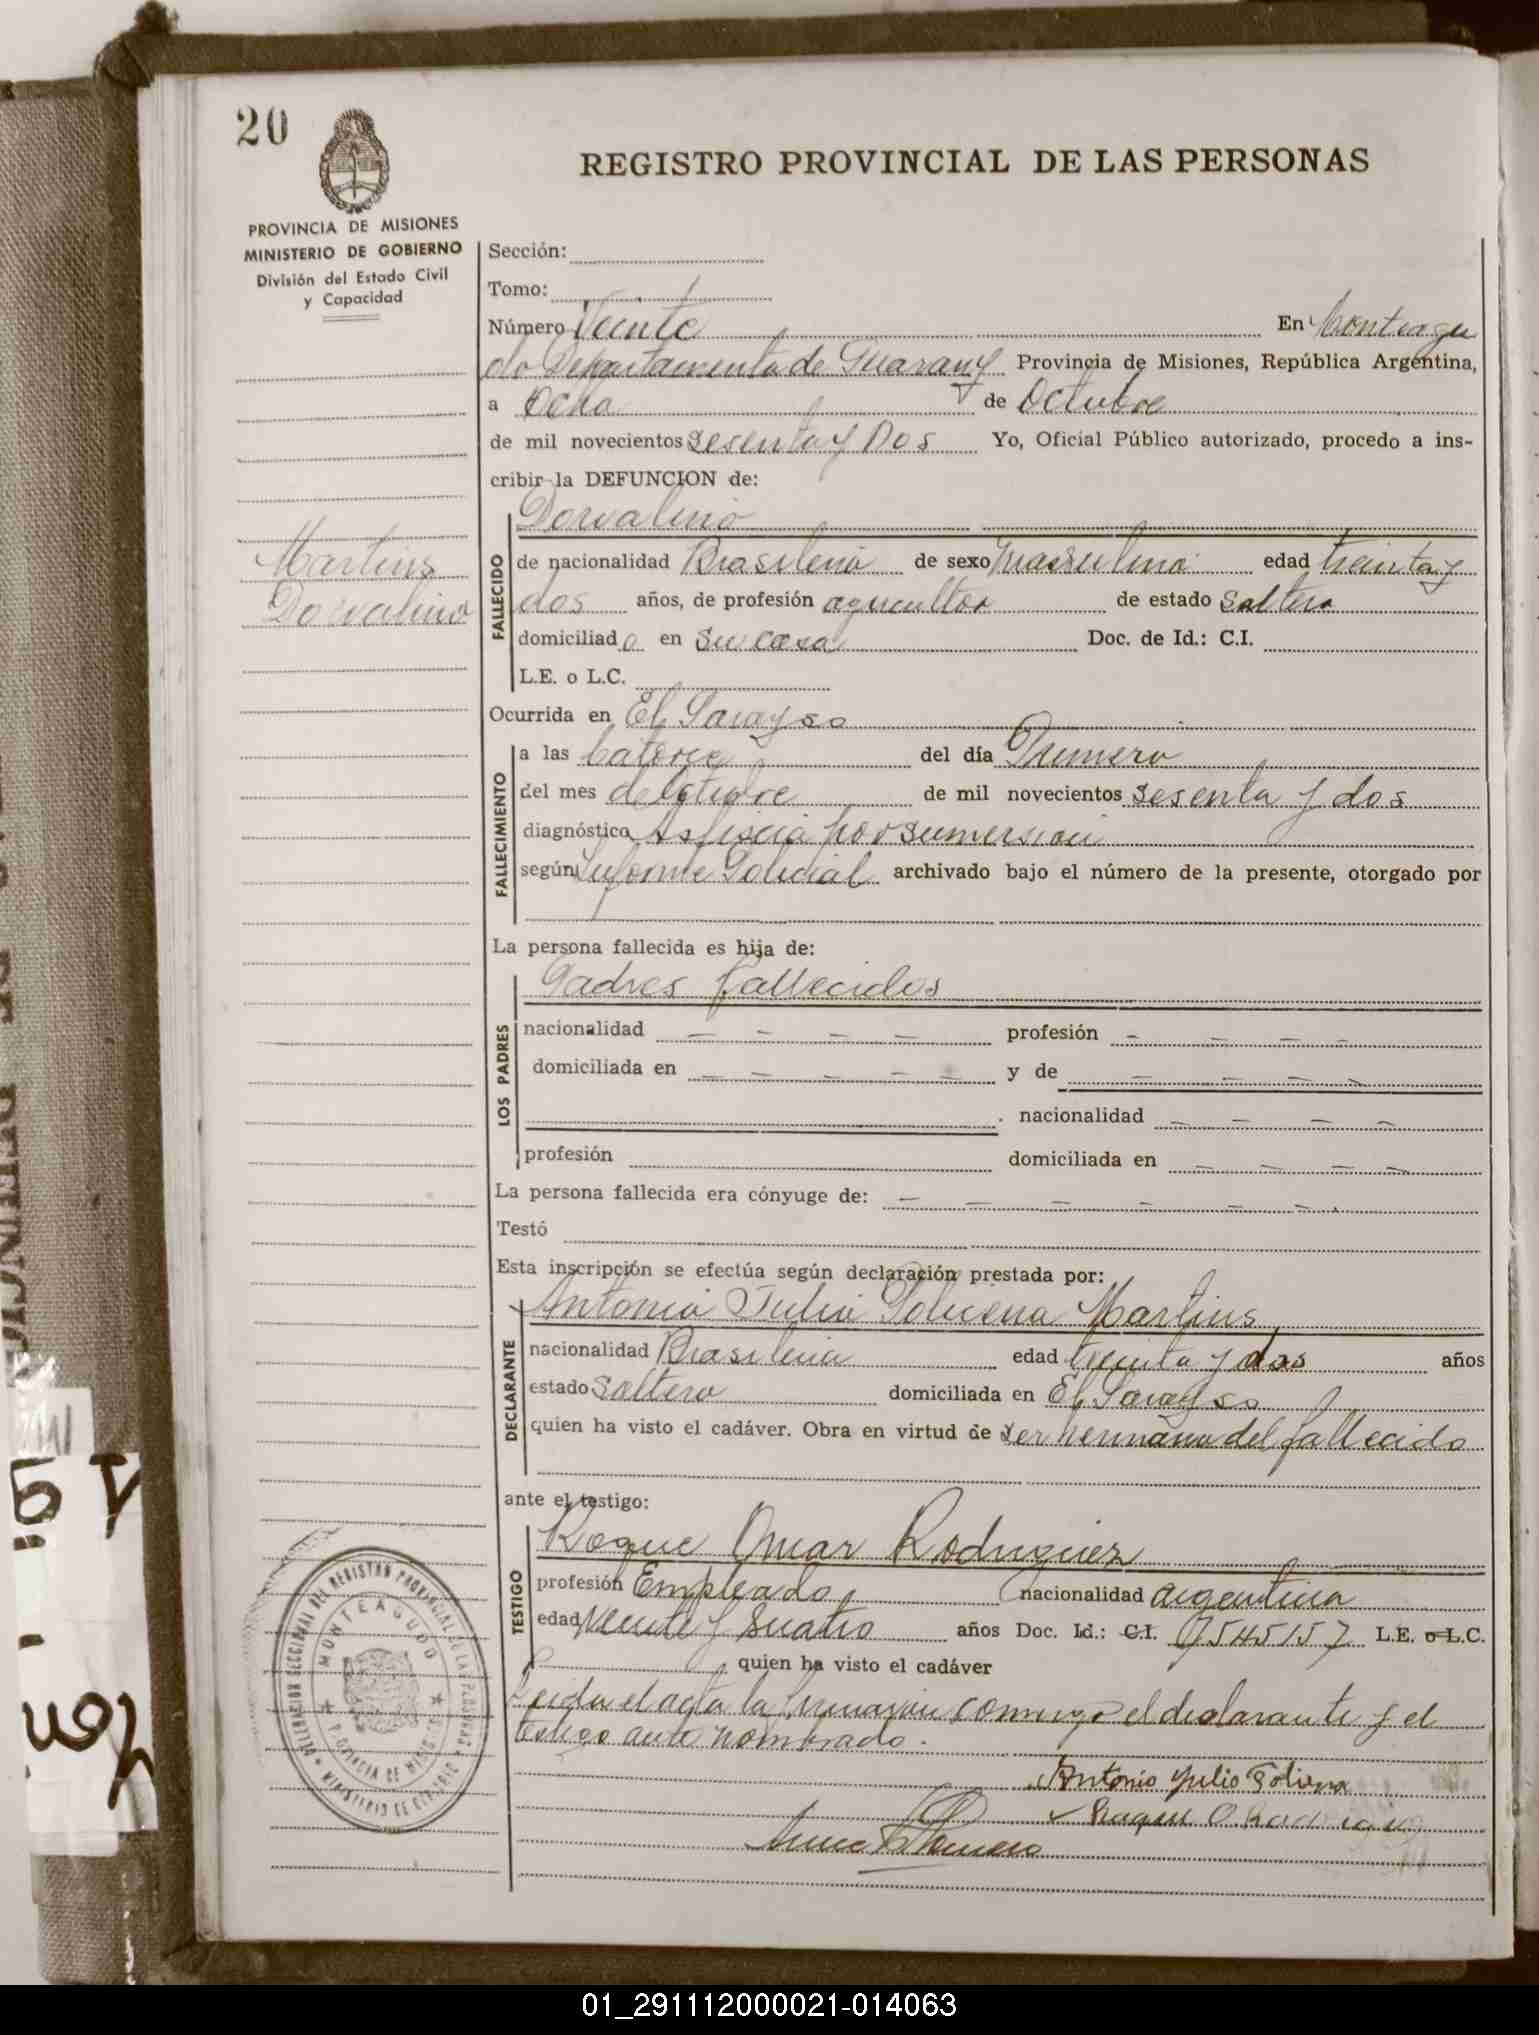 20
REGISTRO PROVINCIAL DE LAS PERSONAS
PROVINCIA DE MISIONES
MINISTERIO DE GOBIERNO
División del Estado Civil
y Capacidad
Sección:
Tomo:
Número Veinte En Monteagu
do Departamento de Guarany Provincia de Misiones, República Argentina,
a Ocho de Octubre
de mil novecientos Sesenta y Dos Yo, Oficial Público autorizado, procedo a ins-
cribir la DEFUNCION de:
Martins
Dorvalino
FALLECIDO
Dorvalino
de nacionalidad Brasileña de sexo Masculino edad treinta y
dos años, de profesión agricultor de estado Soltero
domiciliado en su casa Doc. de Id.: C.I.
L.E. o L.C.
Ocurrida en El Parayso
FALLECIMIENTO
a las Catorce del día Primero
del mes de Octubre de mil novecientos Sesenta y dos
diagnóstico Asfixia por sumersión
según Informe Policial archivado bajo el número de la presente, otorgado por
La persona fallecida es hija de:
LOS PADRES
Padres fallecidos
nacionalidad — — — — profesión — — — —
domiciliada en — — — — — y de — — — —
nacionalidad — — — —
profesión domiciliada en — — — —
La persona fallecida era cónyuge de: — — — — — —
Testó
Esta inscripción se efectúa según declaración prestada por:
DECLARANTE
Antonio Julio Martins,
nacionalidad Brasileña edad treinta y dos años
estado Soltero domiciliada en El Parayso
quien ha visto el cadáver. Obra en virtud de ser hermano del fallecido
ante el testigo:
TESTIGO
Roque Omar Rodriguez
profesión Empleado nacionalidad argentina
edad Veinte y Suatro años Doc. Id.: C.I. 7545157 L.E. o L.C.
quien ha visto el cadáver
Leida el acta la firmaron conmigo el declarante y el
testigo ante nombrado.
Antonio Julio
DELEGACION SECCIONAL DEL REGISTRO PROVINCIAL DE LAS PERSONAS
MONTEAGUDO
PROVINCIA DE MISIONES
MINISTERIO DE GOBIERNO
01_291112000021-014063